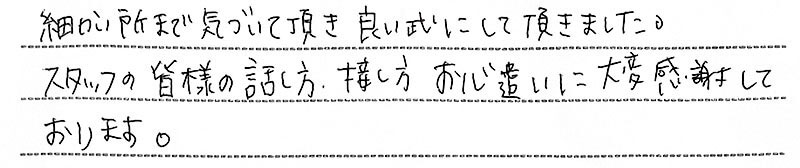 細かい所まで気づいて頂き良い式にして頂きました。
スタッフの皆様の話し方.接し方 お心遣いに大変感謝して
おります。